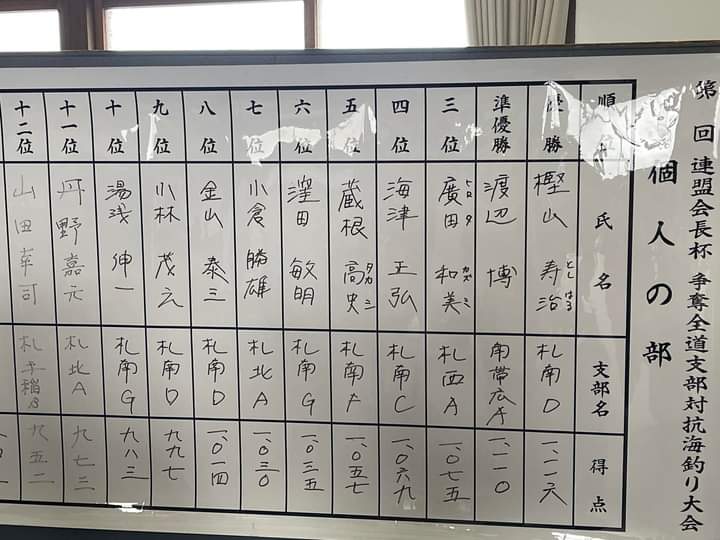 第 回 連盟会長杯 争奪全道支部対抗海釣り大会
個人の部
順位 氏名 支部名 得点
優勝 樫山 寿治 としはる 札南D 一、一一六
準優勝 渡辺 博 南帯広A 一、一一〇
三位 廣田 和美 ヒロタ カズミ 札西A 一、〇七五
四位 海津 正弘 札南C 一、〇六九
五位 蔵根 高史 タカシ 札南F 一、〇五七
六位 窪田 敏明 札南G 一、〇三五
七位 小倉 勝雄 札北A 一、〇三〇
八位 金山 泰三 札南D 一、〇一四
九位 小林 茂之 札南D 九九七
十位 湯浅 伸一 札南G 九八三
十一位 丹野 嘉元 札北A 九七三
十二位 山田 幸司 札手稲B 九五二